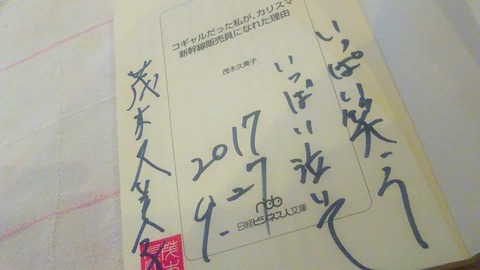 コギャルだった私が、カリスマ
新幹線販売員になれた理由
茂木久美子
いっぱい笑う
いっぱい泣いて
2017
4.27
茂木久美子
nbb
日経ビジネス人文庫